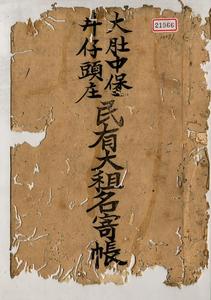 大肚中堡
井仔頭庄
民有大租名寄帳
21966